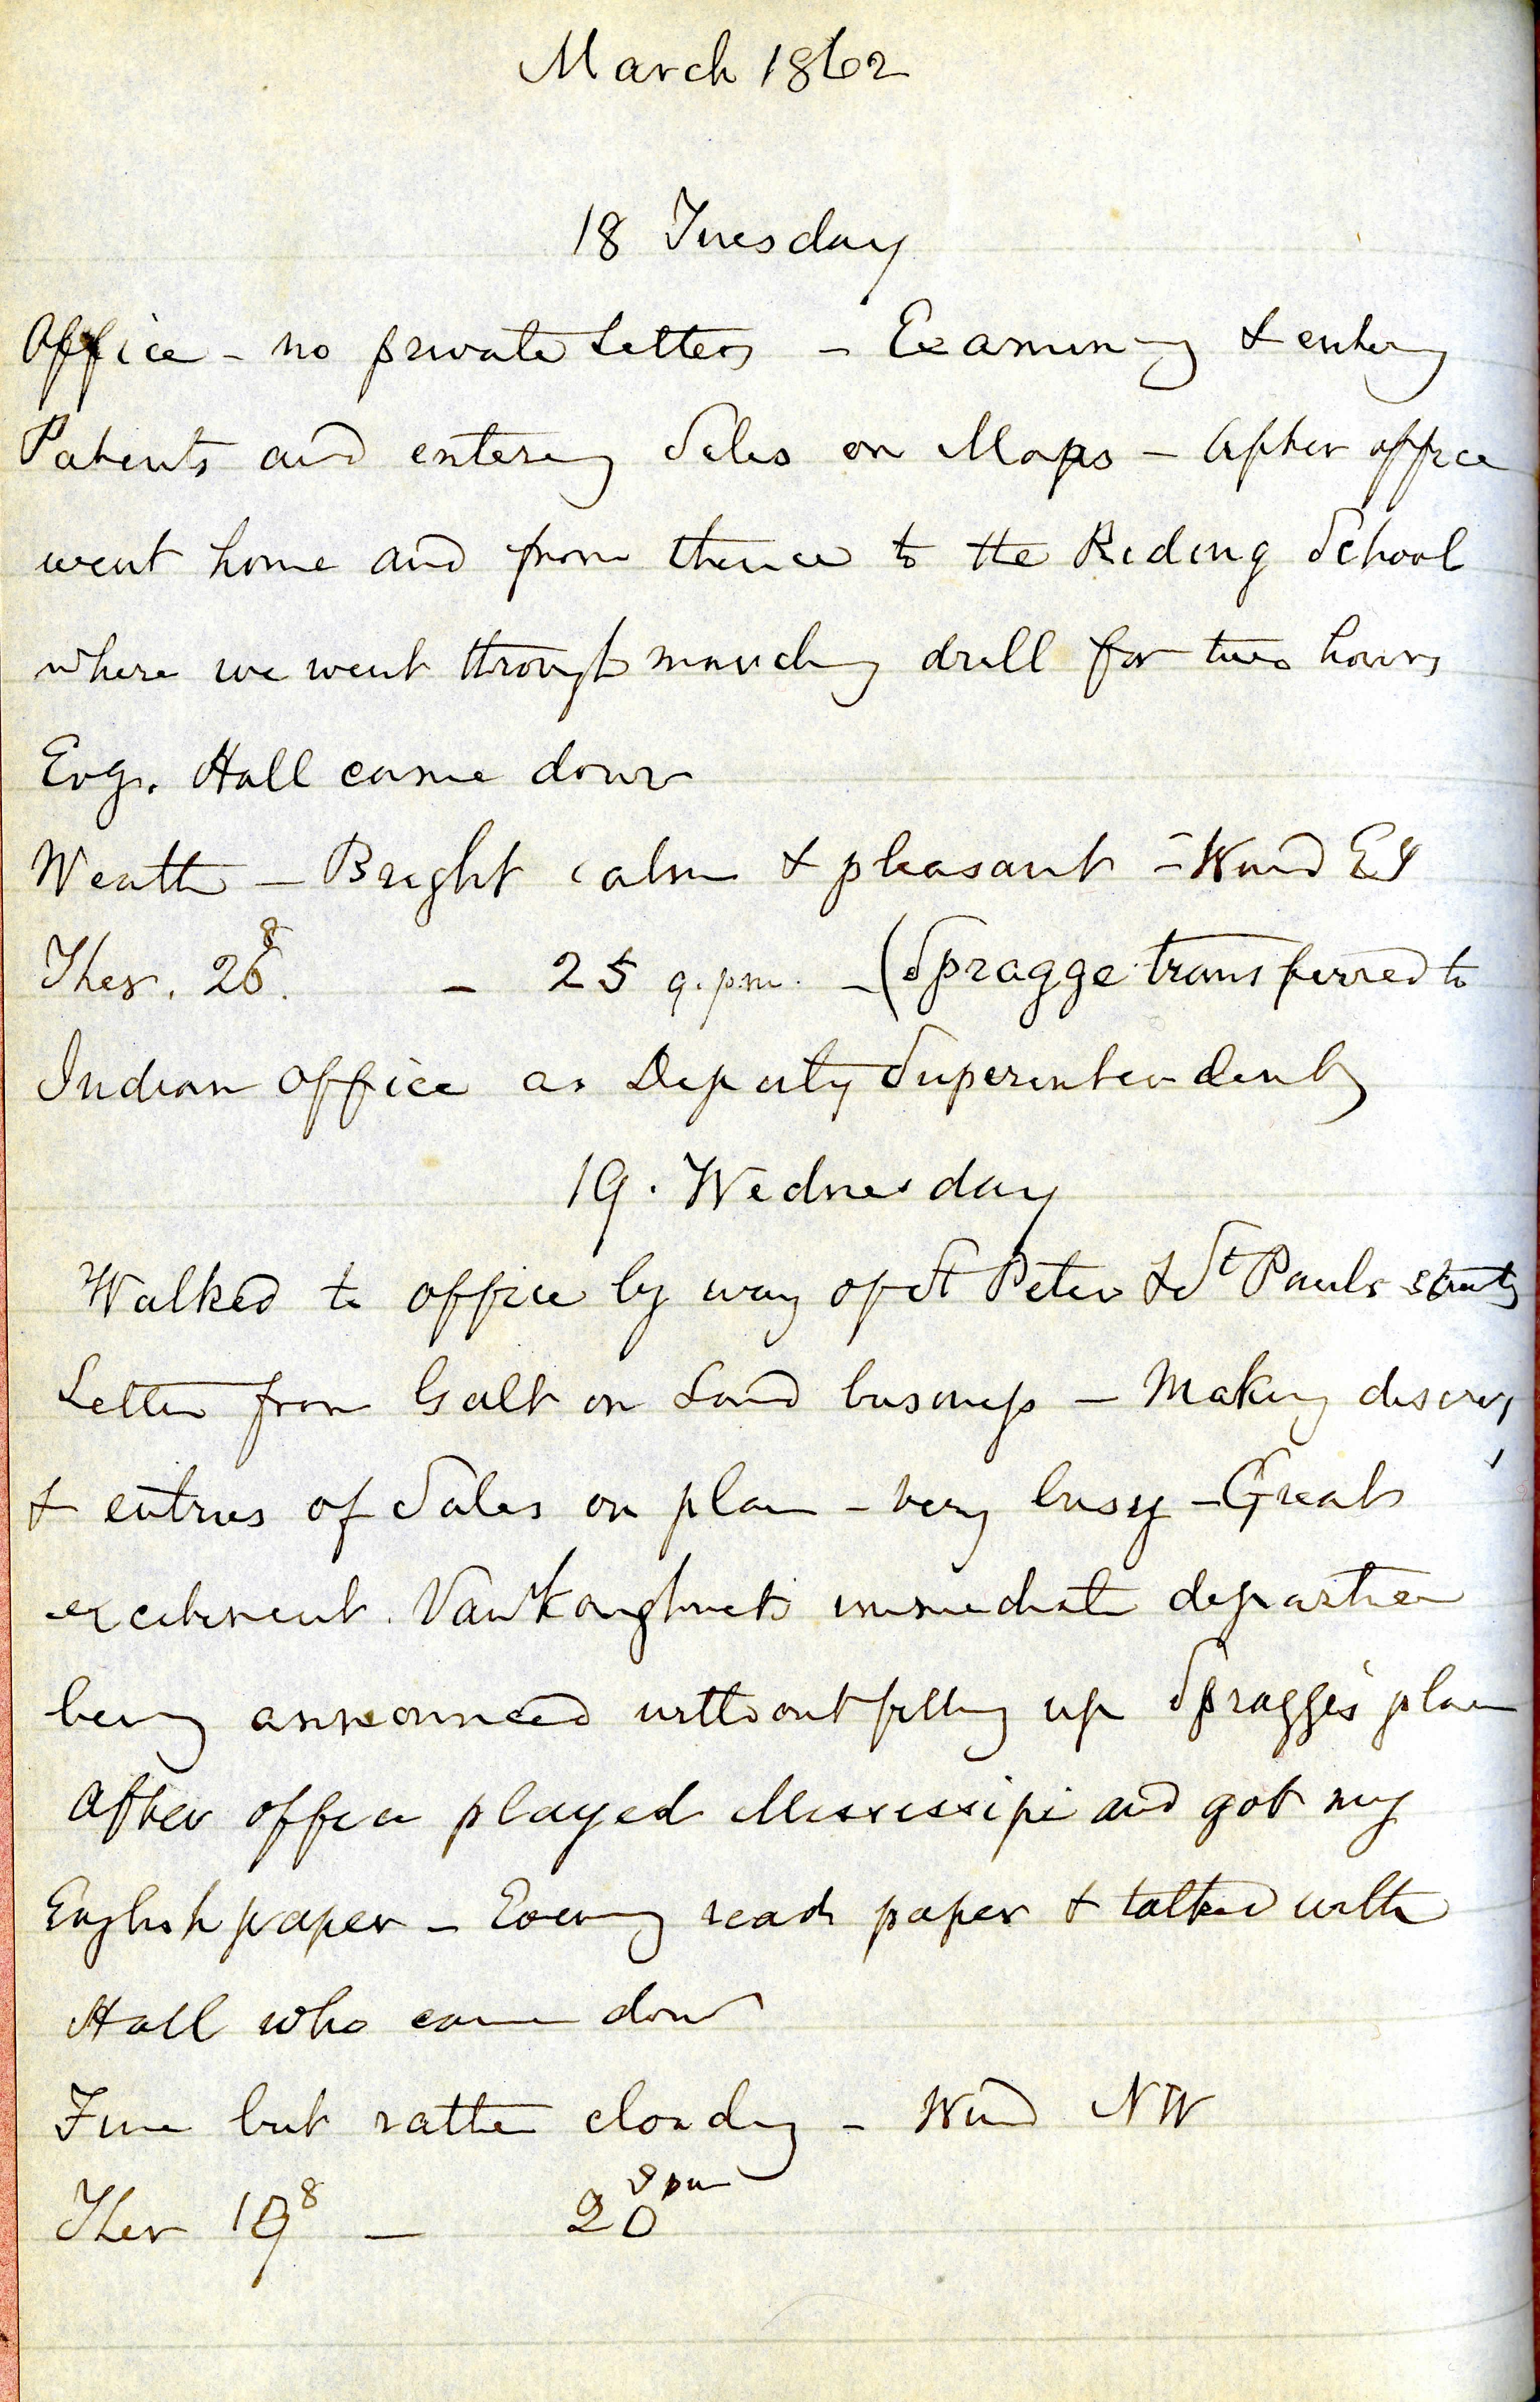 March 1862
18 Tuesday
Office - no private Letters - Examining & entering
Patents and entering Sales on Maps - After office
went home and from thence to the Riding School
where we went through marching drill for two hours
Evg. Hall came down
Weather - Bright calm & pleasant - Wind
Ther. 26 8. - 25 9.pm. - (Spragge transferred to
Indian office as Deputy Superintendent)
19. Wednesday
Walked to office by way of St Peter & St Pauls streets
Letter from Galt on Land business - Making
& entries of Sales on plan - very busy - Great
excitement. VanKoughnets immediate departure
being announced without filling up Spragge's place
After office played Mississipi and got my
English paper - Evening read paper & talked with
Hall who came down
Fine but rather cloudy - Wind NW
Ther 19 8 - 20 9 pm